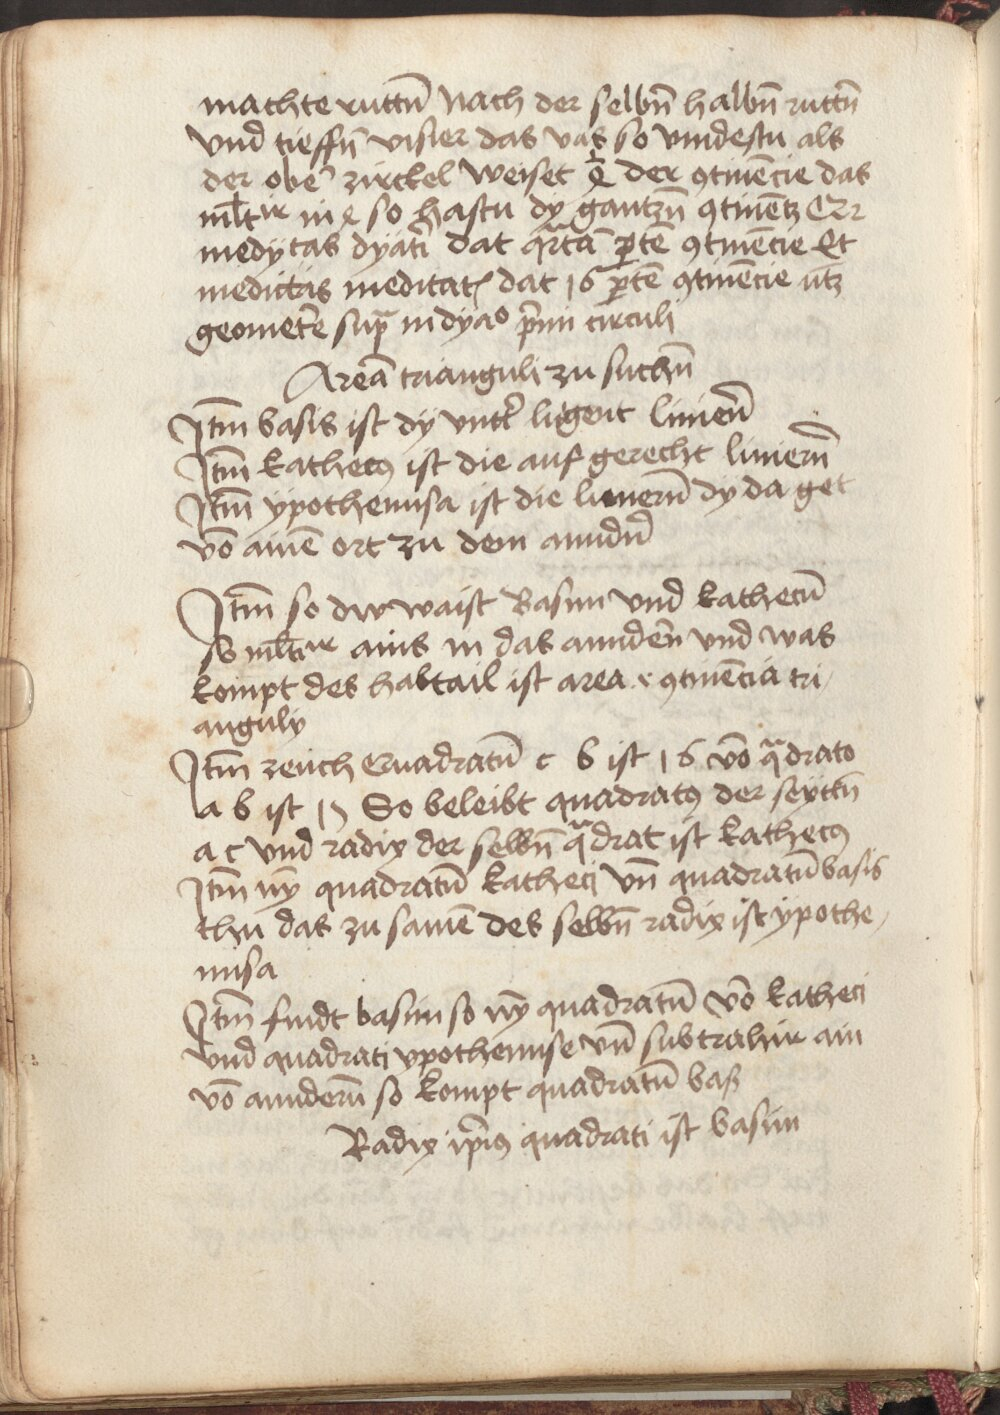 machte ruttn̄ Nach der selbn̄ halbn̄ ruttn̄
Vnd tieffn̄ visier das vas so vindestu als
der obe᷑ zirckel Weiset der ꝯtine̅cie das
ml̄tir in so hastu dy gantzn̄ ꝯtine̅tz
medÿtas dyāti dat qᵃrtā p̲tē ꝯtine̅cie Et
medietas meditat dat 16 p̲tē ꝯtine̅cie vtz
geomet̄e supᵃ in dyao p̄mi circuli
Areā trianguli zu suchn̄
Itm̄ basis ist dÿ vntt̄ ligent linien̄
Itm̄ kathetꝯ ist die auf gerecht liniern̄
Itm̄ ypothemisa ist die liniern̄ dy da get
vō aine̅ ort zu dem anndn̄
Itm̄ so dw waist Basim Vnd kathetū
so ml̄tir ains in das annden̄ Vnd was
kompt des habtail ist area ꝯtine̅cia tri
anguly
Itm̄ zeuch Quadratū c b ist 16 vō qᵃdrato
a b ist So beleibt quadratꝯ der seyttn̄
a c Vnd radix der selbn̄ qᵃdrat ist kathetꝯ
Itm̄ nȳ quadratū katheti Vn̄ quadratū basis
thu das zu same̅ des selbn̄ radix ist ypothe
misa
Itm̄ findt basim so nȳ quadratū vō katheti
Vnd quadrati ypothemise Vn̄ subtrahir ain
vō anndern̄ so kompt quadratū basꝭ
Radix ip̄iꝯ quadrati ist basim